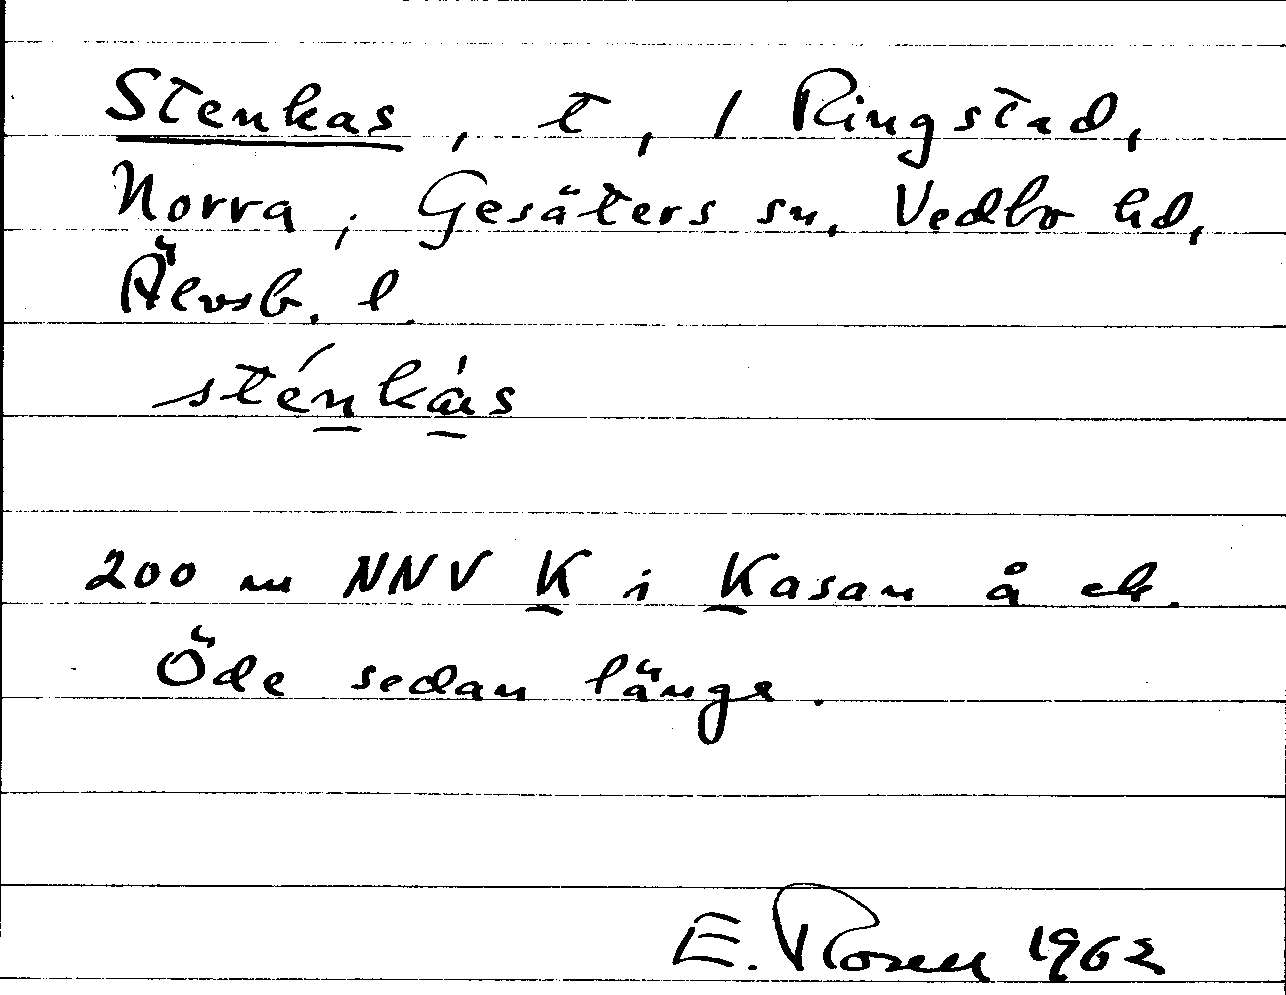 Stenkas, t, / Ringstad,
Norra, Gesäters sn, Vedbo hd,
Älvsb. l.
sténkàs
200 m NNV K i Kasan å ek.
Öde sedan länge.
E. Rosell 1962